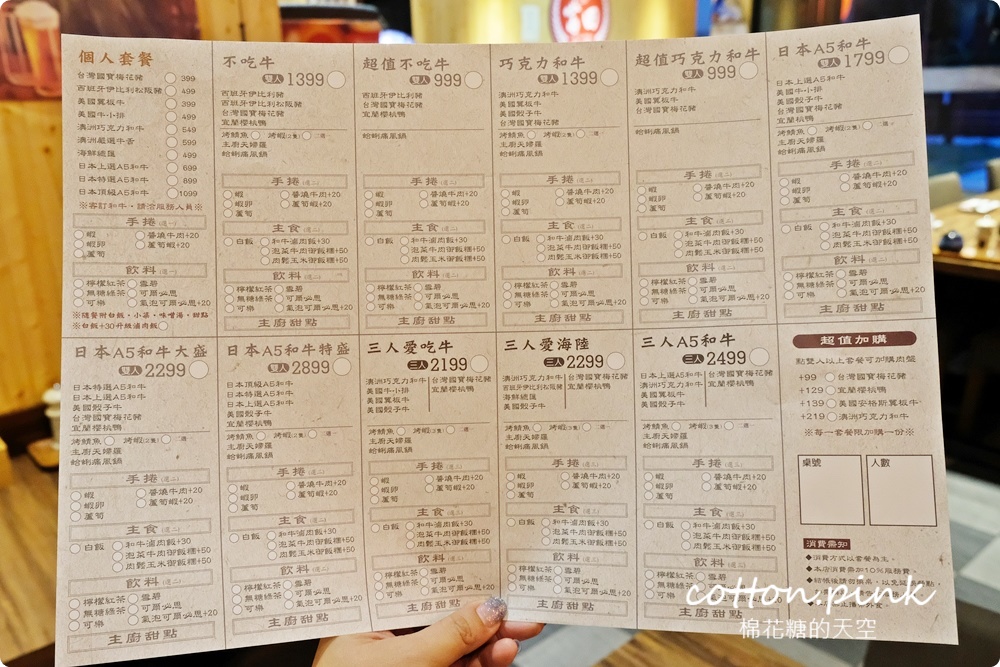 個人套餐
台灣國寶梅花豬 399
西班牙伊比利松阪豬 499
美國翼板牛 399
美國牛小排 499
澳洲巧克力和牛 549
澳洲嚴選牛舌 599
海鮮總匯 499
日本上選A5和牛 699
日本特選A5和牛 899
日本頂級A5和牛 1099
※客訂和牛,請洽服務人員※
手捲(選一)
蝦 醬燒牛肉+20
蝦卵 蘆筍蝦+20
蘆筍
飲料(選一)
檸檬紅茶 雪碧
無糖綠茶 可爾必思
可樂 氣泡可爾必思+20
※隨餐附白飯、小菜、味噌湯、甜點
※白飯+30升級滷肉飯
不吃牛
雙人1399
西班牙伊比利豬
西班牙伊比利松阪豬
台灣國寶梅花豬
宜蘭櫻桃鴨
烤鯖魚 烤蝦(2隻) 二選一
主廚天婦羅
蛤蜊痛風鍋
手捲(選二)
蝦 醬燒牛肉+20
蝦卵 蘆筍蝦+20
蘆筍
主食(選二)
白飯 和牛滷肉飯+30
泡菜牛肉御飯糰+50
肉鬆玉米御飯糰+50
飲料(選二)
檸檬紅茶 雪碧
無糖綠茶 可爾必思
可樂 氣泡可爾必思+20
主廚甜點
超值不吃牛
雙人999
西班牙伊比利豬
台灣國寶梅花豬
宜蘭櫻桃鴨
蛤蜊痛風鍋
手捲(選二)
蝦 醬燒牛肉+20
蝦卵 蘆筍蝦+20
蘆筍
主食(選二)
白飯 和牛滷肉飯+30
泡菜牛肉御飯糰+50
肉鬆玉米御飯糰+50
飲料(選二)
檸檬紅茶 雪碧
無糖綠茶 可爾必思
可樂 氣泡可爾必思+20
主廚甜點
巧克力和牛
雙人1399
澳洲巧克力和牛
美國翼板牛
美國骰子牛
台灣國寶梅花豬
烤鯖魚 烤蝦(2隻) 二選一
主廚天婦羅
蛤蜊痛風鍋
手捲(選二)
蝦 醬燒牛肉+20
蝦卵 蘆筍蝦+20
蘆筍
主食(選二)
白飯 和牛滷肉飯+30
泡菜牛肉御飯糰+50
肉鬆玉米御飯糰+50
飲料(選二)
檸檬紅茶 雪碧
無糖綠茶 可爾必思
可樂 氣泡可爾必思+20
主廚甜點
超值巧克力和牛
雙人999
澳洲巧克力和牛
美國翼板牛
台灣國寶梅花豬
蛤蜊痛風鍋
手捲(選二)
蝦 醬燒牛肉+20
蝦卵 蘆筍蝦+20
蘆筍
主食(選二)
白飯 和牛滷肉飯+30
泡菜牛肉御飯糰+50
肉鬆玉米御飯糰+50
飲料(選二)
檸檬紅茶 雪碧
無糖綠茶 可爾必思
可樂 氣泡可爾必思+20
主廚甜點
日本A5和牛
雙人1799
日本上選A5和牛
美國翼板牛
美國骰子牛
台灣國寶梅花豬
宜蘭櫻桃鴨
烤鯖魚 烤蝦(2隻) 二選一
主廚天婦羅
蛤蜊痛風鍋
手捲(選二)
蝦 醬燒牛肉+20
蝦卵 蘆筍蝦+20
蘆筍
主食(選二)
白飯 和牛滷肉飯+30
泡菜牛肉御飯糰+50
肉鬆玉米御飯糰+50
飲料(選二)
檸檬紅茶 雪碧
無糖綠茶 可爾必思
可樂 氣泡可爾必思+20
主廚甜點
日本A5和牛大盛
雙人2299
日本特選A5和牛
日本上選A5和牛
美國骰子牛
台灣國寶梅花豬
宜蘭櫻桃鴨
烤鯖魚 烤蝦(2隻) 二選一
主廚天婦羅
蛤蜊痛風鍋
手捲(選二)
蝦 醬燒牛肉+20
蝦卵 蘆筍蝦+20
蘆筍
主食(選二)
白飯 和牛滷肉飯+30
泡菜牛肉御飯糰+50
肉鬆玉米御飯糰+50
飲料(選二)
檸檬紅茶 雪碧
無糖綠茶 可爾必思
可樂 氣泡可爾必思+20
主廚甜點
日本A5和牛特盛
雙人2899
日本頂級A5和牛
日本特選A5和牛
日本上選A5和牛
台灣國寶梅花豬
宜蘭櫻桃鴨
烤鯖魚 烤蝦(2隻) 二選一
主廚天婦羅
蛤蜊痛風鍋
手捲(選二)
蝦 醬燒牛肉+20
蝦卵 蘆筍蝦+20
蘆筍
主食(選二)
白飯 和牛滷肉飯+30
泡菜牛肉御飯糰+50
肉鬆玉米御飯糰+50
飲料(選二)
檸檬紅茶 雪碧
無糖綠茶 可爾必思
可樂 氣泡可爾必思+20
主廚甜點
三人愛吃牛
三人2199
澳洲巧克力和牛 台灣國寶梅花豬
美國牛小排 宜蘭櫻桃鴨
美國翼板牛
美國骰子牛
烤鯖魚 烤蝦(3隻) 二選一
主廚天婦羅
蛤蜊痛風鍋
手捲(選三)
蝦 醬燒牛肉+20
蝦卵 蘆筍蝦+20
蘆筍
主食(選三)
白飯 和牛滷肉飯+30
泡菜牛肉御飯糰+50
肉鬆玉米御飯糰+50
飲料(選三)
檸檬紅茶 雪碧
無糖綠茶 可爾必思
可樂 氣泡可爾必思+20
主廚甜點
三人愛海陸
三人2299
澳洲巧克力和牛 台灣國寶梅花豬
西班牙伊比利豬 宜蘭櫻桃鴨
海鮮總匯
美國骰子牛
烤鯖魚 烤蝦(3隻) 二選一
主廚天婦羅
蛤蜊痛風鍋
手捲(選三)
蝦 醬燒牛肉+20
蝦卵 蘆筍蝦+20
蘆筍
主食(選三)
白飯 和牛滷肉飯+30
泡菜牛肉御飯糰+50
肉鬆玉米御飯糰+50
飲料(選三)
檸檬紅茶 雪碧
無糖綠茶 可爾必思
可樂 氣泡可爾必思+20
主廚甜點
三人A5和牛
三人2499
日本上選A5和牛 台灣國寶梅花豬
澳洲巧克力和牛 宜蘭櫻桃鴨
美國翼板牛
美國骰子牛
烤鯖魚 烤蝦(3隻) 二選一
主廚天婦羅
蛤蜊痛風鍋
手捲(選三)
蝦 醬燒牛肉+20
蝦卵 蘆筍蝦+20
蘆筍
主食(選三)
白飯 和牛滷肉飯+30
泡菜牛肉御飯糰+50
肉鬆玉米御飯糰+50
飲料(選三)
檸檬紅茶 雪碧
無糖綠茶
可樂
主廚甜點
超值加購
點雙人以上套餐可加購肉盤
+99 台灣國寶梅花豬
+129 宜蘭櫻桃鴨
+139 美國安格斯翼板牛
+219 澳洲巧克力和牛
※每一套餐限加購一份※
桌號 人數
消費需知
◆消費方式以套餐為主。
◆本店消費需加10%服務費。
cotton.pink
棉花糖的天空